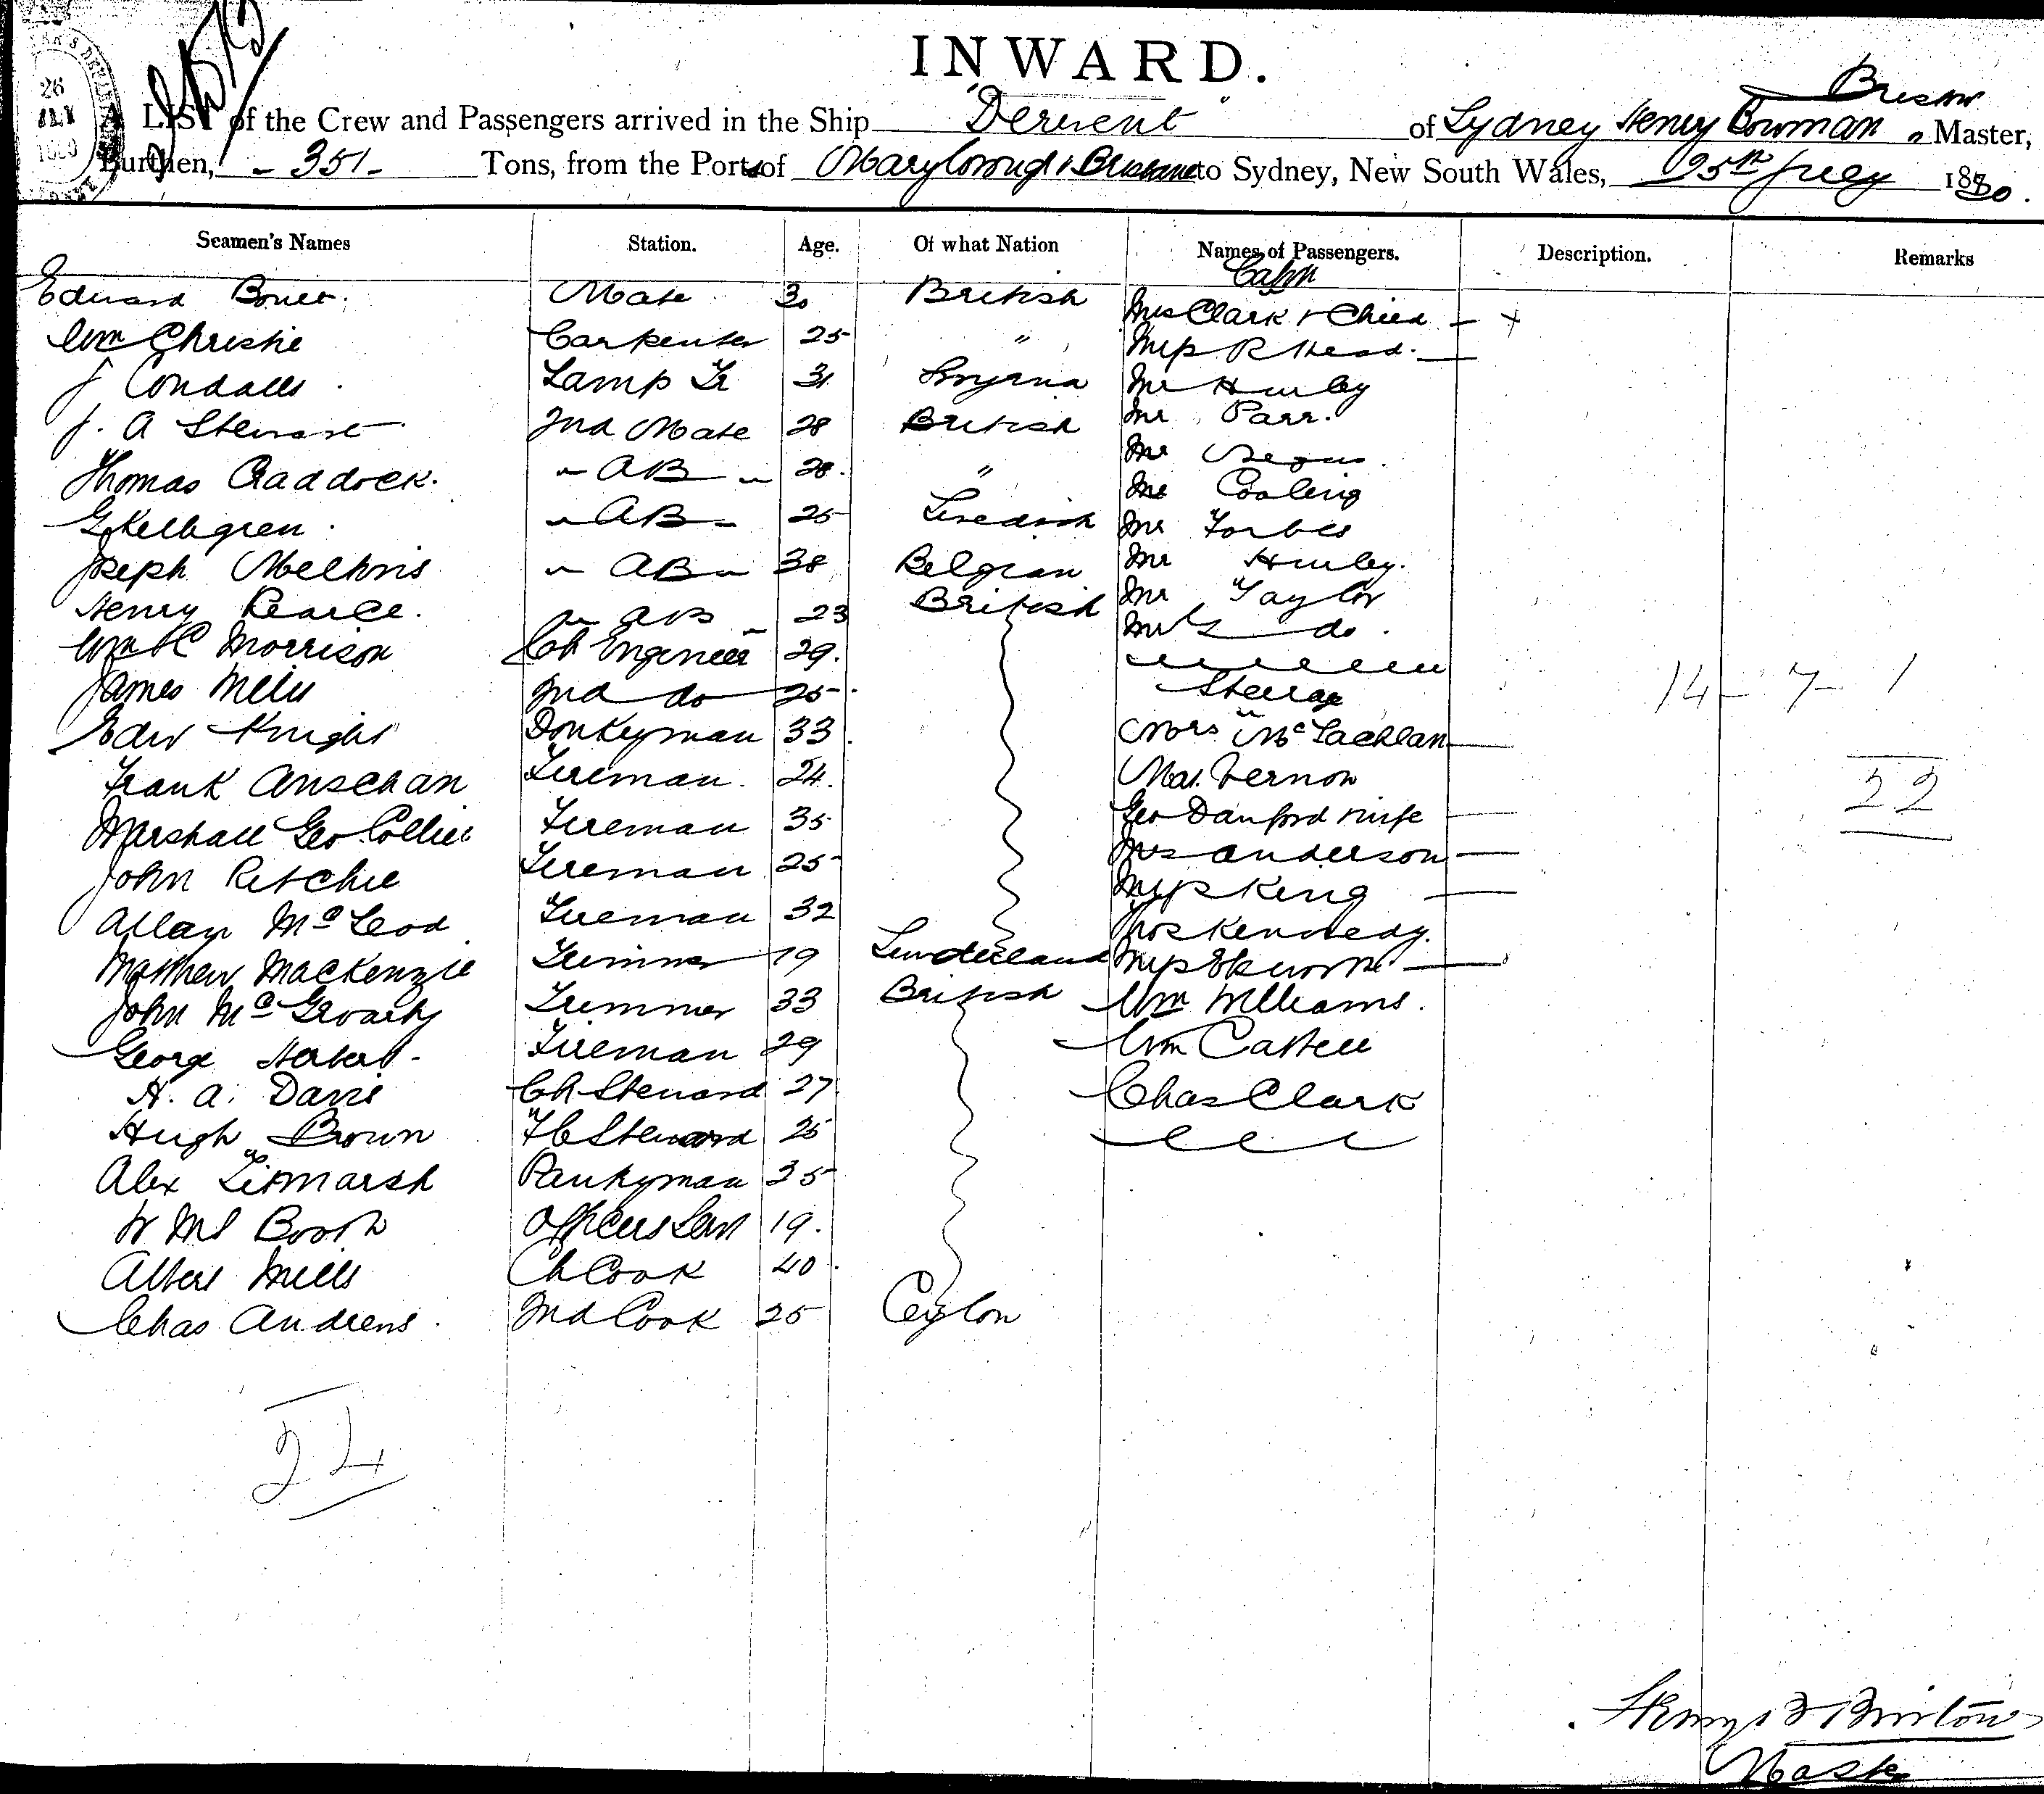 INWARD.
26
JLY
A LIST of the Crew and Passengers arrived in the Ship "Derwent" of Sydney Henry Bowman, Master,
Burthen, - 351 - Tons, from the Port of Maryborough & Brisbane to Sydney, New South Wales, 25th July 1880.
Seamen's Names Station. Age. Of what Nation Names of Passengers. Description. Remarks
Cabin
Edward Mate 30 British Mrs Clark & Child
Wm Christie Carpenter 25 " Miss R Head.
J Lamp Tr 31 Smyrna Mr Hurley
J. A Stewart 2nd Mate 28 British Mr Parr.
Thomas Craddock. " AB " 28. " Mr
G Kellgren " AB " 25 Swedish Mr Cooling
Mr Forbes
Joseph " AB " 38 Belgian Mr Hurley.
Henry Pearce. " AB " 23 British Mr Taylor
Mrs do.
Wm C Morrison Ch Engineer 29.
James 2nd do 25 Steerage
14 - 7 - 1
Edwd Knight Donkeyman 33 Mrs McLachlan
Frank Anschan Fireman. 24. Vernon
22
Marshall Geo Collier Fireman 35 Geo Danford & wife
John Ritchie Fireman 25 Mrs Anderson
Miss King
Allan McLeod Fireman 32 Thos Kennedy.
Matthew Mackenzie Trimmer 19 Sunderland Miss
John Trimmer 33 British Wm Williams.
George Herbert. Fireman 29 Wm
H. A. Davis Ch Steward 27 Chas Clark
Hugh Brown Steward 25
Alex Titmarsh Pantryman 35
Booth Officers Servt 19.
Albert Mills Ch Cook 40.
Chas Andrews. 2nd Cook 25 Ceylon
24
Master